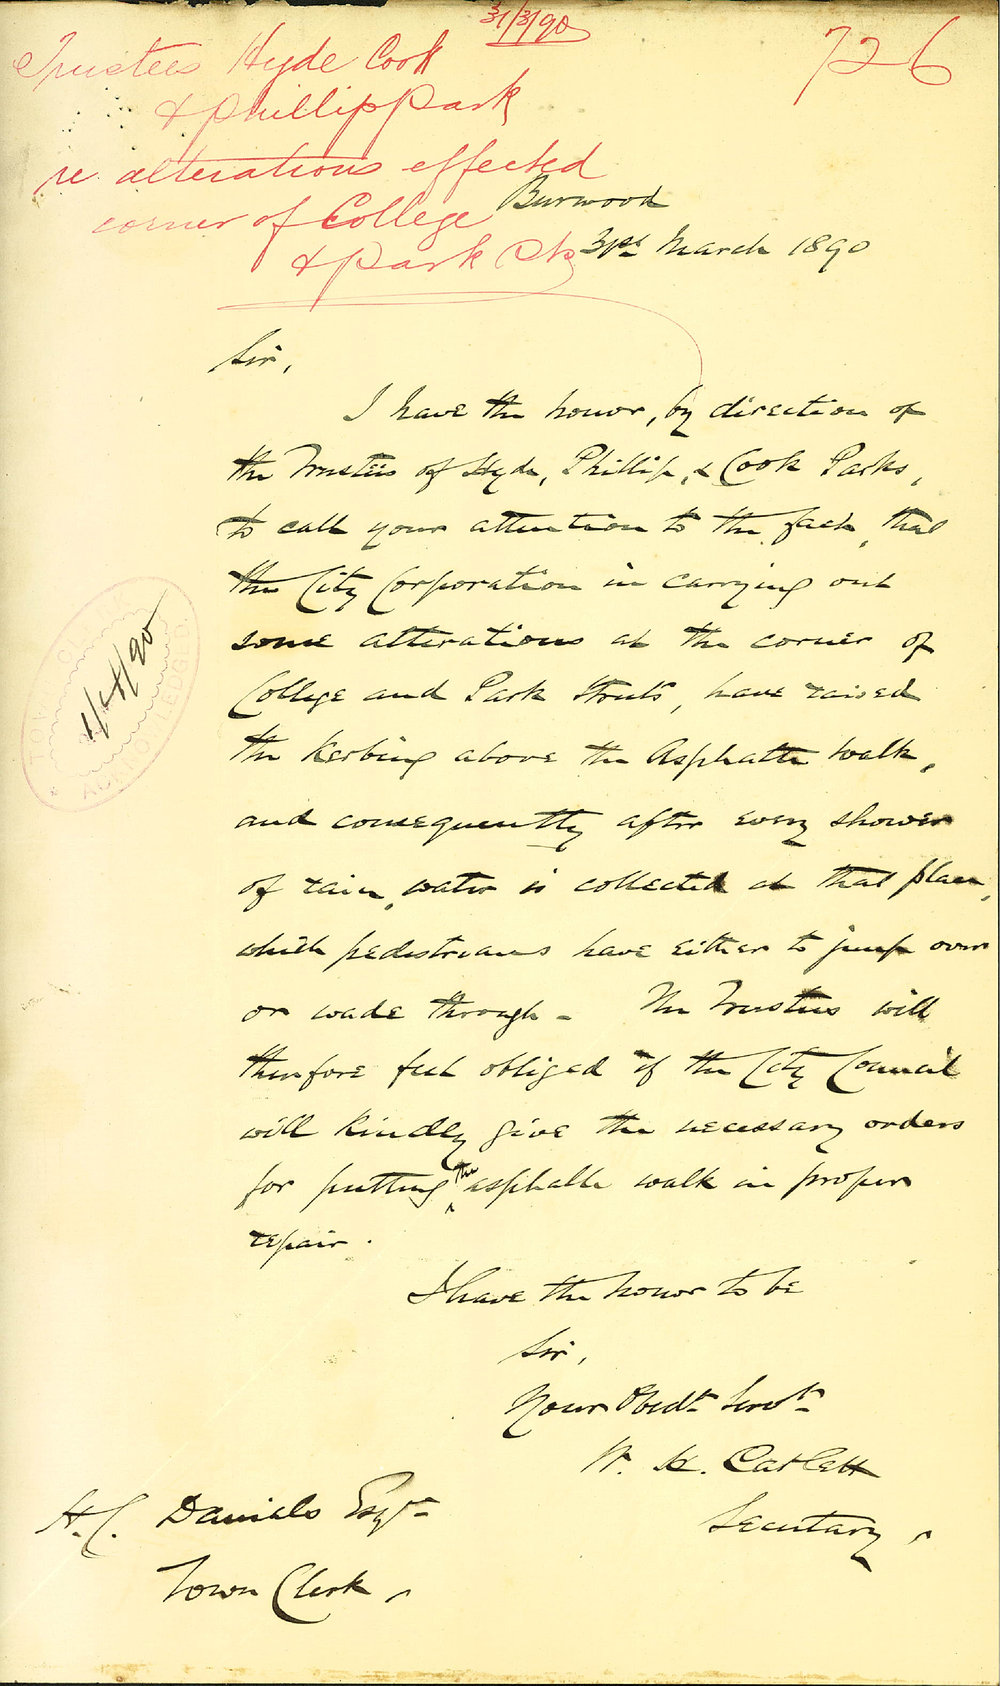 31/3/90
726
Trustees Hyde Cook
& Phillip Park
re alterations effected
corner of College
& Park Sts
Burwood
31st March 1890
Sir,
I have the honor, by direction of
the Trustees of Hyde, Phillip, & Cook Parks,
to call your attention to the fact, that
the City Corporation in carrying out
some alterations at the corner of
College and Park Streets, have raised
the Kerbing above the Asphalte walk,
and consequently after every shower
of rain, water is collected at that place,
which pedestrians have either to jump over
or wade through - The Trustees will
therefore feel obliged if the City Council
will kindly give the necessary orders
for putting the asphalte walk in proper
repair.
I have the honor to be
Sir,
Your Obedt Servt
W. H. Catlett
Secretary
H. C. Daniels Esqre
Town Clerk
TOWN CLERK
1/4/90
ACKNOWLEDGED